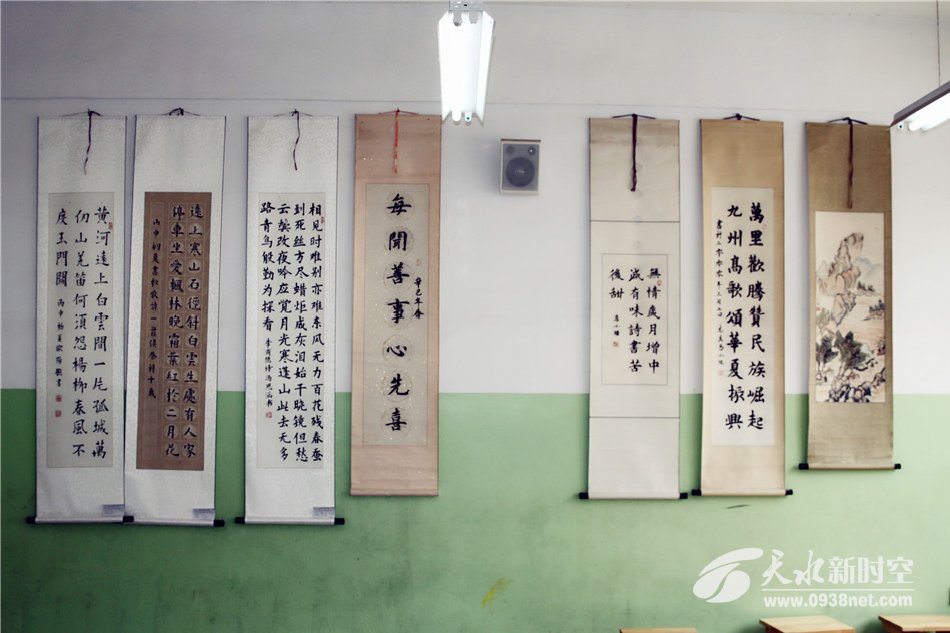 黄河遠上白雲間一片孤城萬
仞山羌笛何須怨楊柳春風不
度玉門關
遠上寒山石徑斜白雲生處有人家
停車坐愛楓林晚霜葉紅於二月花
丙申初夏書杜牧詩一首
相見时难别亦难东风无力百花残春蚕
到死丝方尽蜡炬成灰泪始干晓镜但愁
云鬓改夜吟应觉月光寒蓬山此去无多
路青鸟殷勤为探看
每聞善事心先喜
辛巳年春
無情歲月增中
減有味詩書苦
後甜
萬里歡騰贊民族崛起
九州高歌頌華夏振興
天水新时空
www.0938net.com